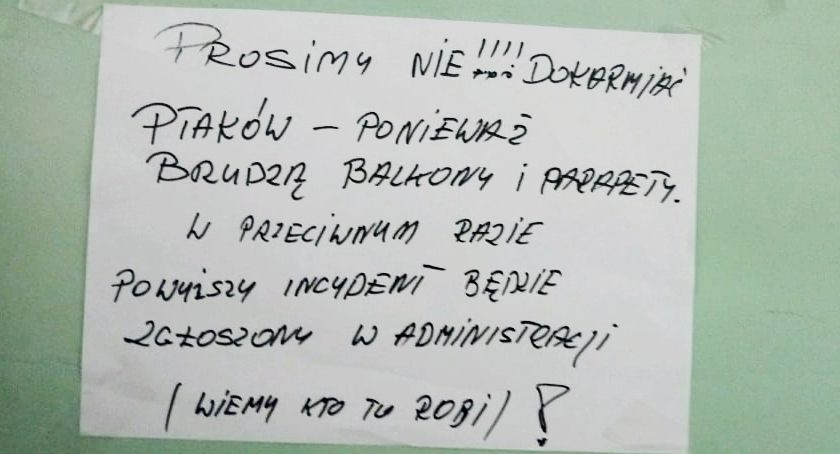 PROSIMY NIE !!!! DOKARMIAĆ
PTAKÓW – PONIEWAŻ
BRUDZĄ BALKONY i PARAPETY.
W PRZECIWNYM RAZIE
POWYŻSZY INCYDENT BĘDZIE
ZGŁOSZONY W ADMINISTRACJI
(WIEMY KTO TO ROBI) !